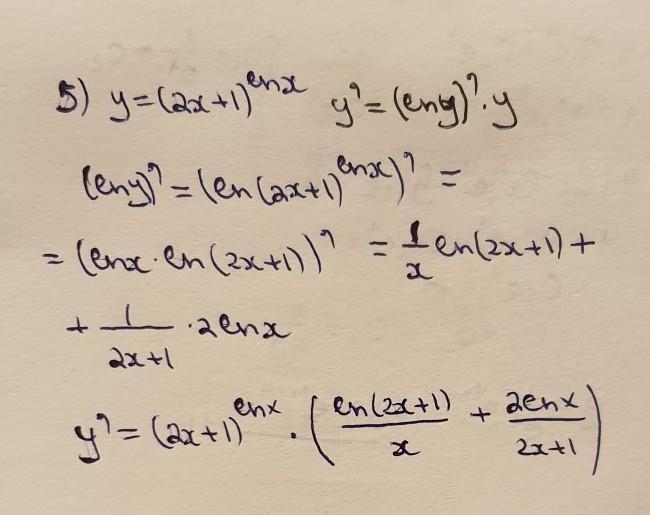 5) y=(2x+1)^{ln x}  y'=(ln y)'·y
(ln y)'=(ln(2x+1)^{ln x})'=
=(ln x·ln(2x+1))'=\frac{1}{x}ln(2x+1)+
+\frac{1}{2x+1}·2ln x
y'=(2x+1)^{ln x}·(\frac{ln(2x+1)}{x}+\frac{2ln x}{2x+1})